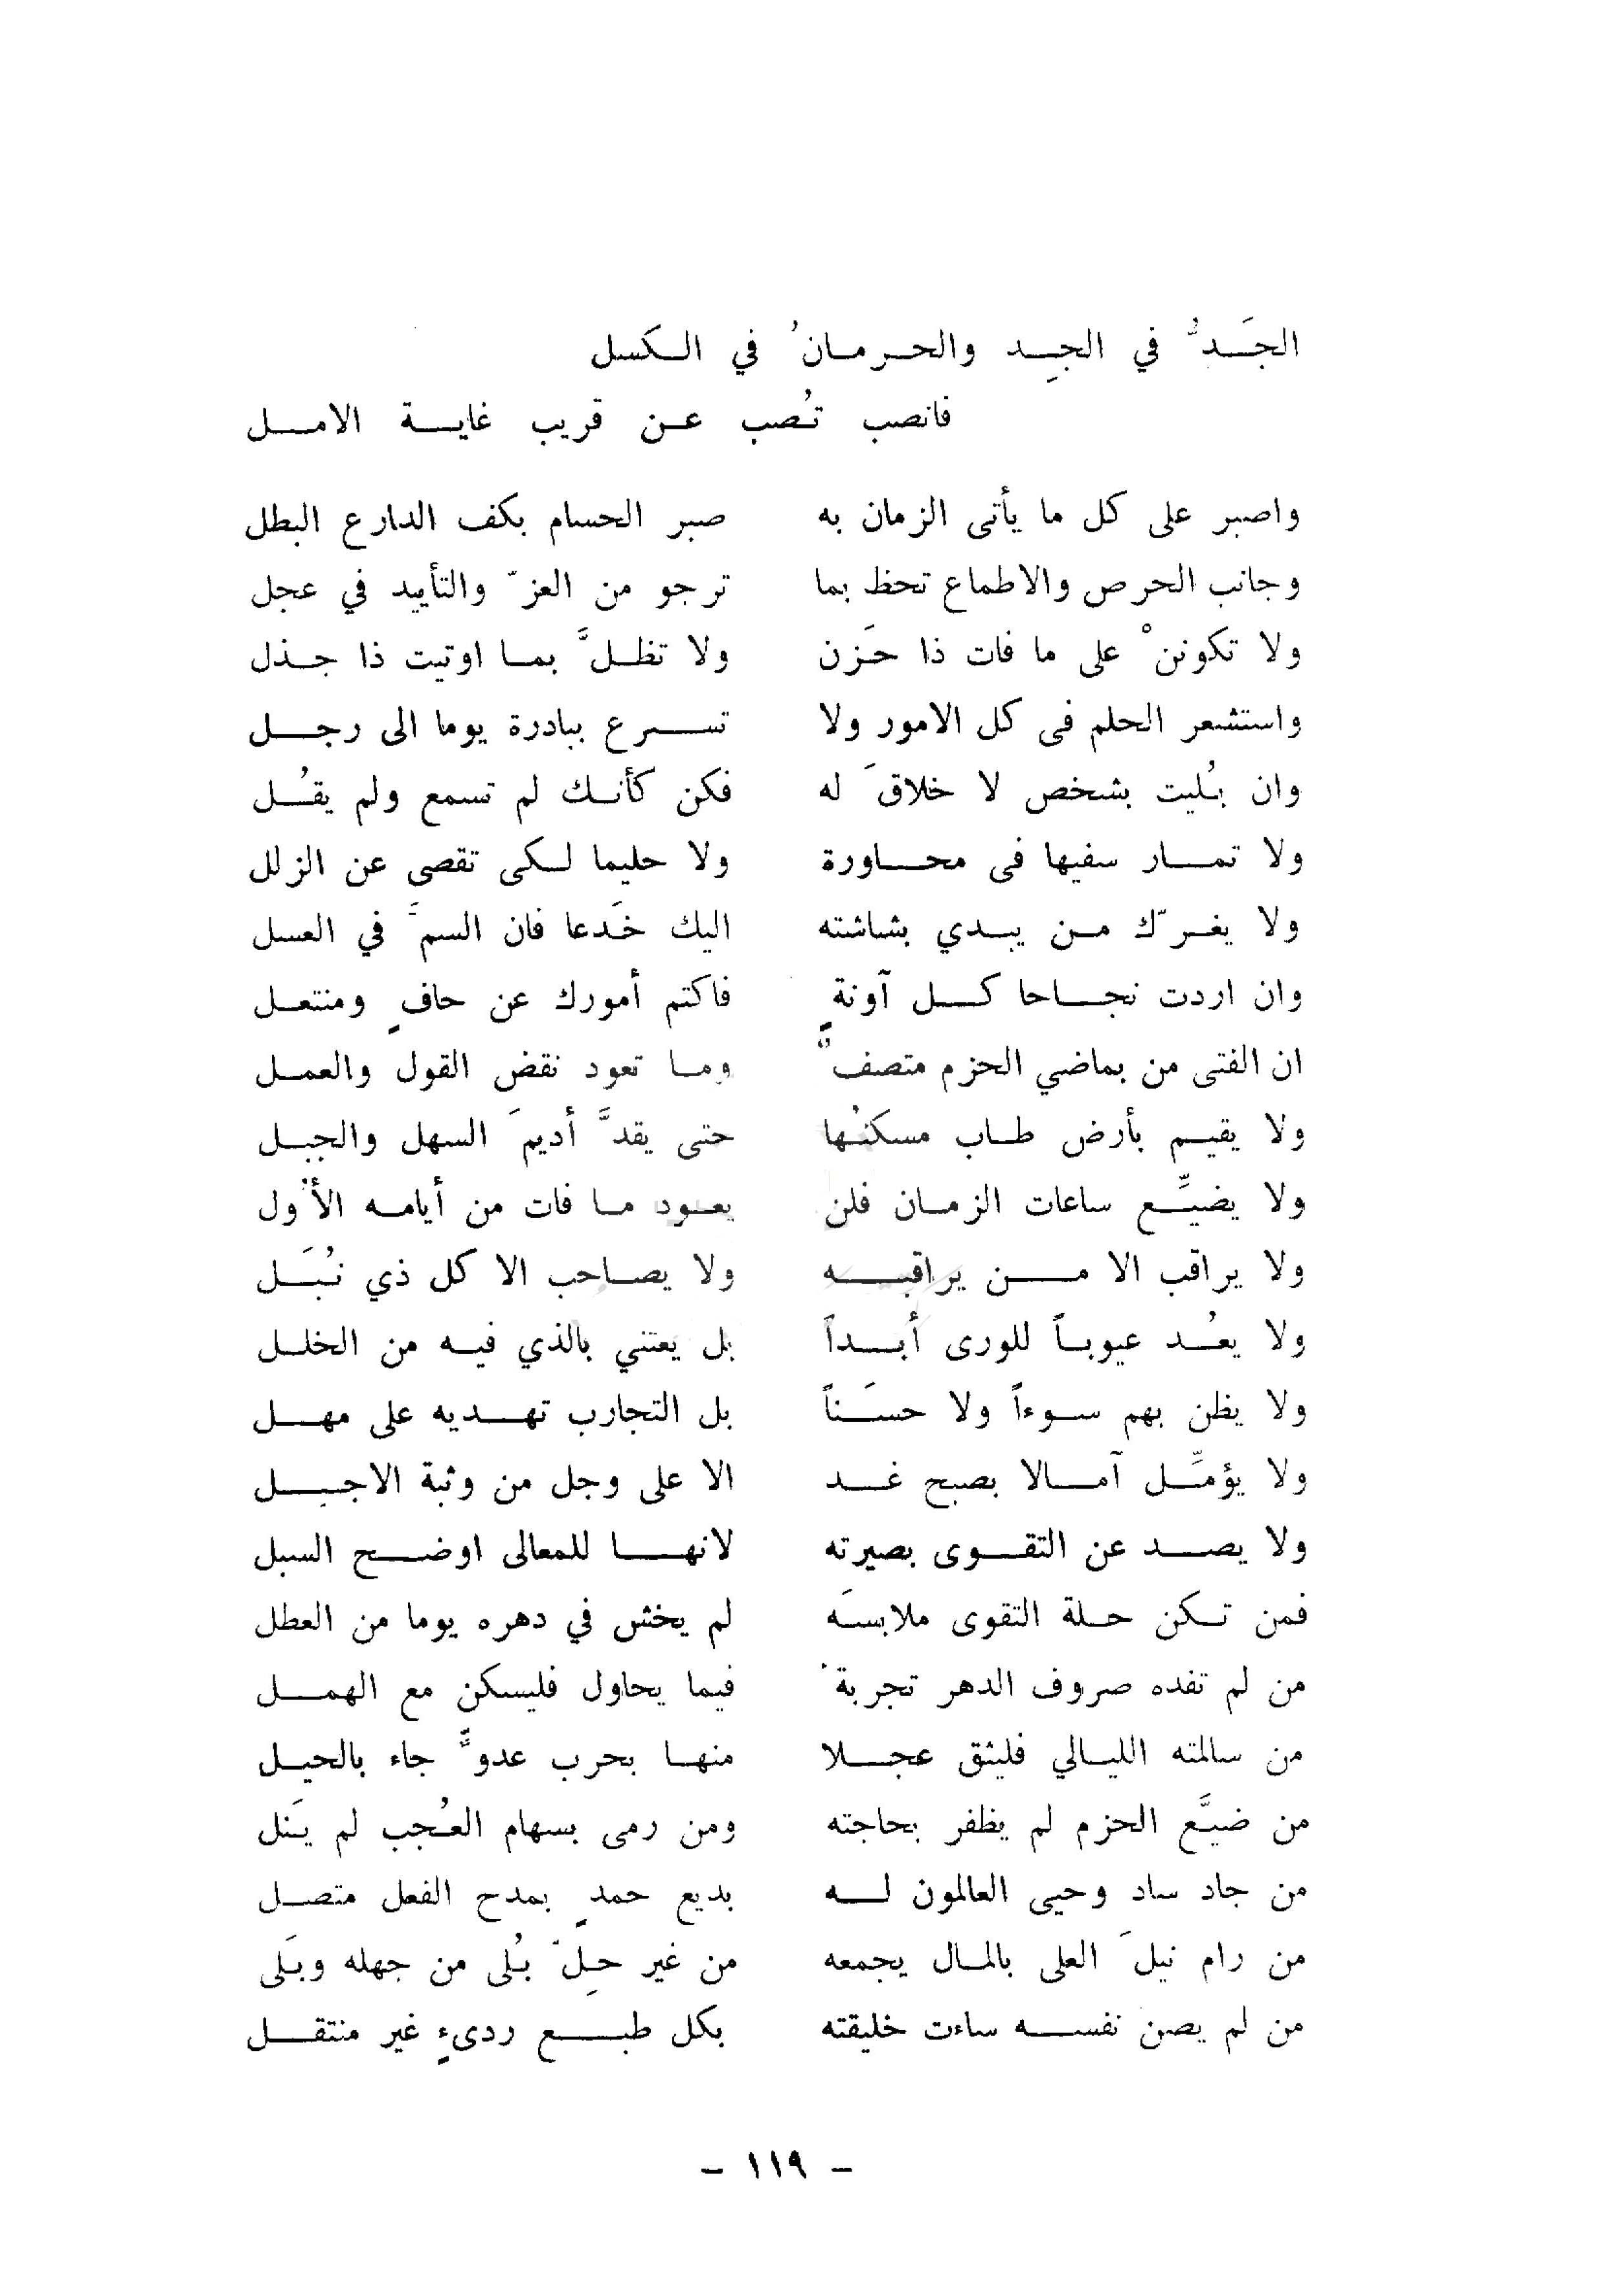 الجَـدُّ في الجِـد والحـرمـانُ في الـكَسل
فانصب تُـصب عـن قريب غايـة الامـل
واصبر على كل ما يأتى الزمان به صبر الحسام بكف الدارع البطل
وجانب الحرص والاطماع تحظ بما ترجو من العزّ والتأييد في عجل
ولا تكوننْ على ما فات ذا حَزن ولا تظـلَّ بمـا اوتيت ذا جـذل
واستشعر الحلم فى كل الامور ولا تسـرع ببادرة يوما الى رجـل
وان بُليت بشخص لا خلاقَ له فكن كأنـك لم تسمع ولم يقُـل
ولا تمـار سفيها فى محـاورة ولا حليما لـكى تقصى عن الزلل
ولا يغـرّك مـن يبـدي بشاشته اليك خَدعا فان السمَّ في العسل
وان اردت نجـاحا كـل آونةٍ فاكتم أمورك عن حافٍ ومنتعـل
ان الفتى من بماضي الحزم متصفٌ ومـا تعود نقض القول والعمـل
ولا يقيـم بأرض طـاب مسكنُـها حتى يقدَّ أديمَ السهل والجبـل
ولا يضيِّـع ساعات الزمـان فلن يعـود مـا فات من أيامـه الأُول
ولا يراقب الا مـن يراقبـه ولا يصـاحب الا كل ذي نُبَـل
ولا يعُـد عيوبـاً للورى أبـداً بل يعتني بالذي فيـه من الخلـل
ولا يظن بهم سـوءاً ولا حسَـناً بل التجارب تهـديه على مهـل
ولا يؤمِّـل آمـالا بصبح غـد الا على وجل من وثبة الاجـل
ولا يصـد عن التقـوى بصيرته لانهـا للمعالى اوضـح السبل
فمن تـكن حـلة التقوى ملابسَـه لم يخش في دهره يوما من العطل
من لم تفده صروف الدهر تجربةً فيما يحاول فليسكن مع الهمـل
من سالمته الليـالي فليثق عجـلا منهـا بحرب عدوٍّ جاء بالحيـل
من ضيَّـع الحزم لم يظفر بحاجته ومن رمى بسهام العُـجب لم يَـنل
من جاد ساد وحيى العالمون لـه بديع حمدٍ بمدح الفعل متصـل
من رام نيلَ العلى بالمـال يجمعه من غير حـِلّ بُـلى من جهله وبَلى
من لم يصن نفسـه ساءت خليقته بكل طبـع ردىءٍ غير منتقـل
– ١١٩ –